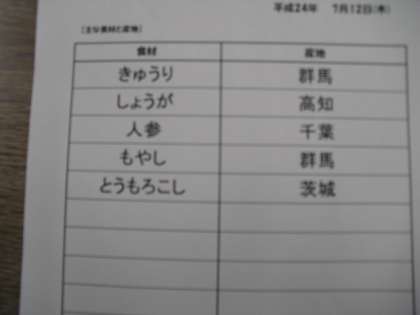 平成24年 7月12日(木)
(主な食材と産地)
食材 産地
きゅうり 群馬
しょうが 高知
人参 千葉
もやし 群馬
とうもろこし 茨城